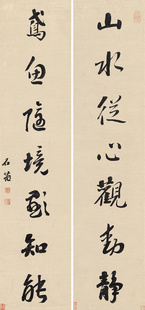 山水從心觀動靜
鳶魚隨境罷知能
石菴